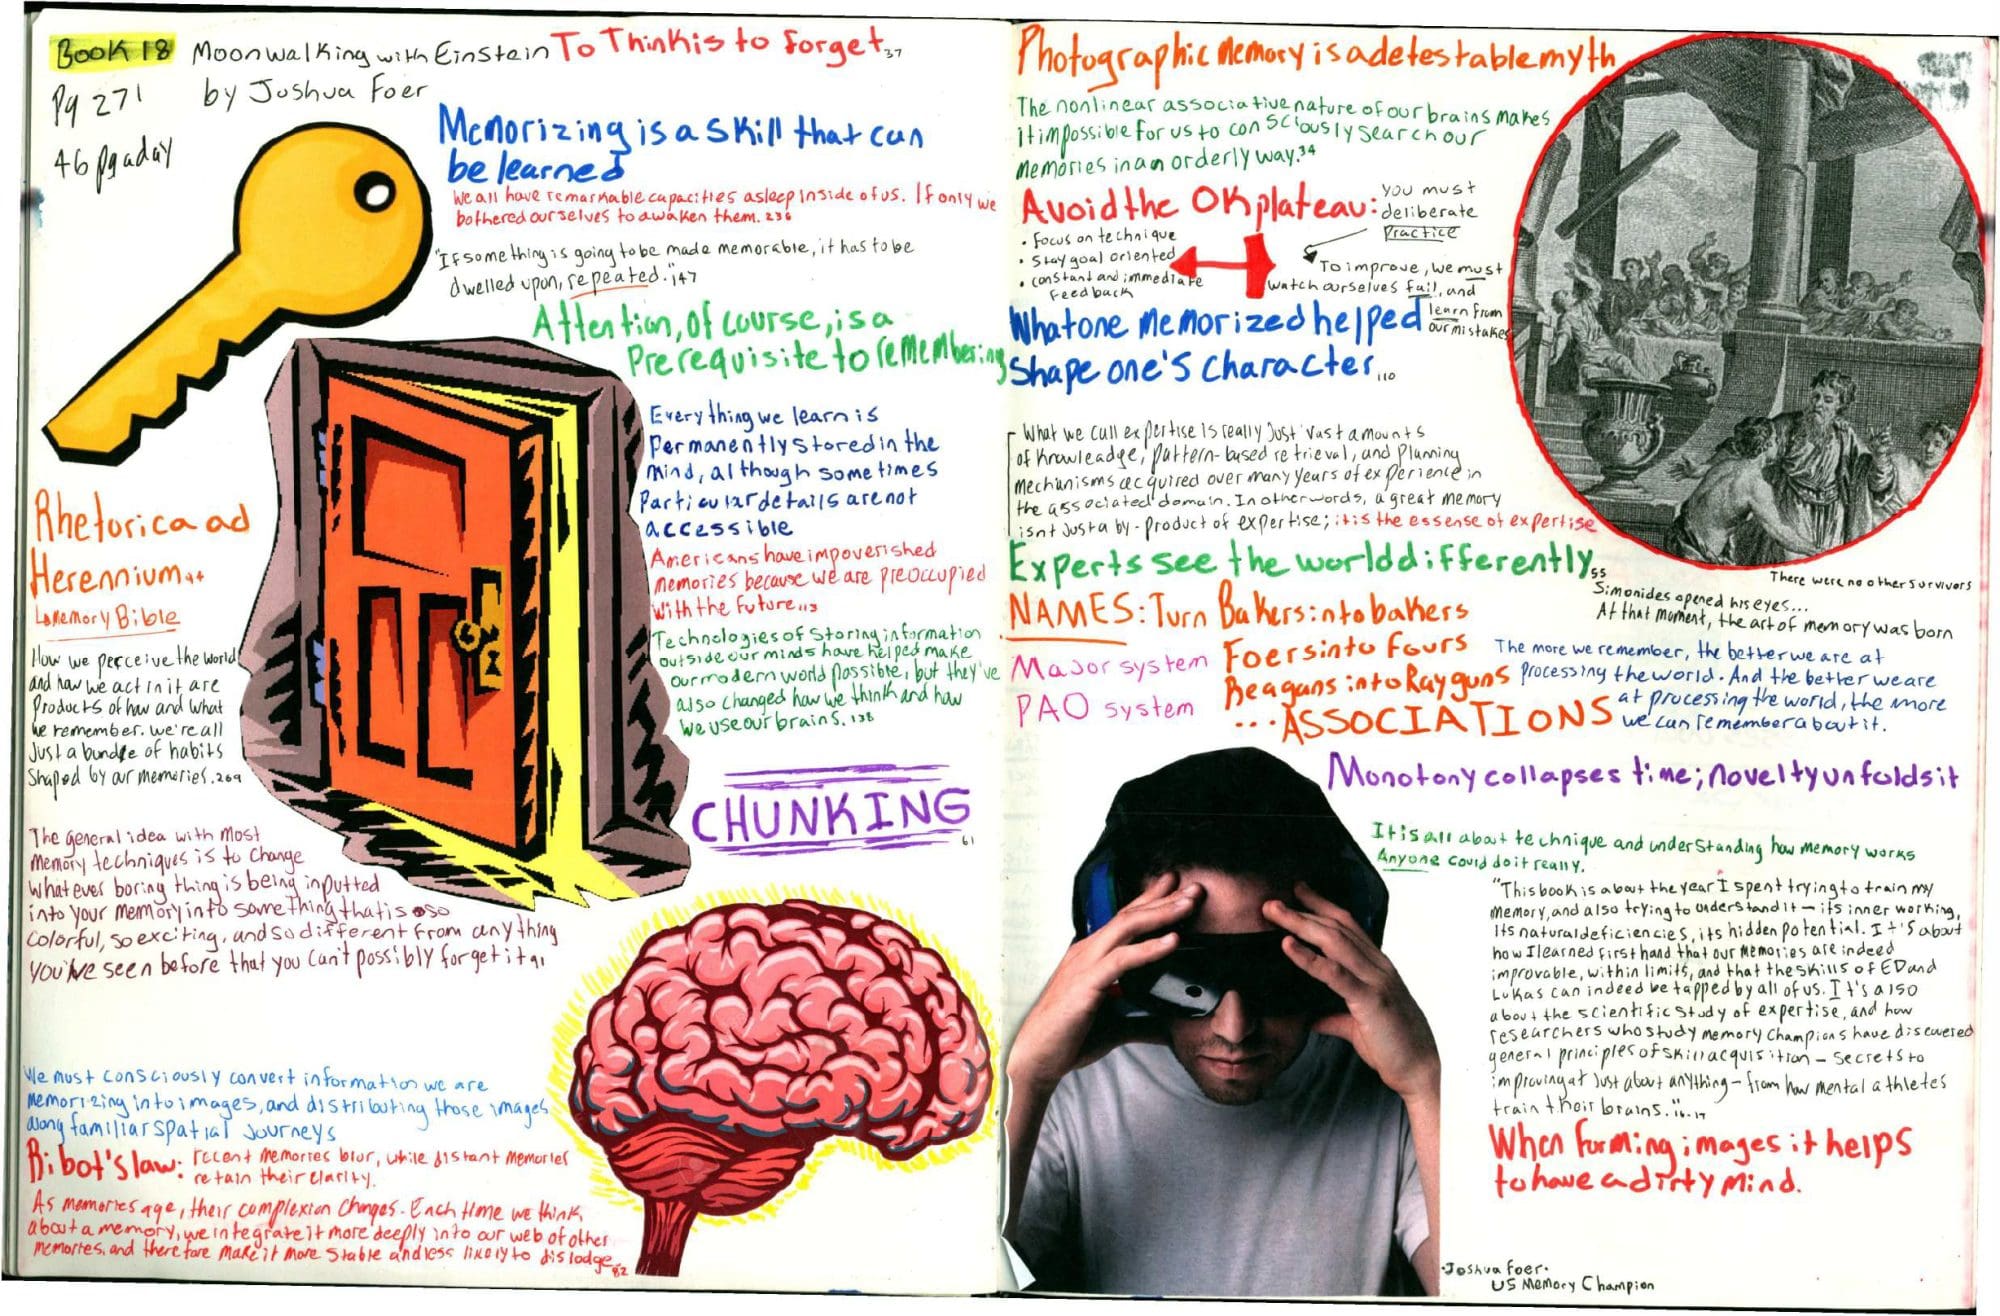 BOOK 18 Moonwalking with Einstein
by Joshua Foer
Pg 271
46 pg a day
To Think is to forget 37
Memorizing is a skill that can
be learned
We all have remarkable capacities asleep inside of us. If only we
bothered ourselves to awaken them. 236
"If something is going to be made memorable, it has to be
dwelled upon, repeated." 147
Attention, of course, is a
Prerequisite to remembering
Everything we learn is
Permanently stored in the
mind, although sometimes
Particular details are not
accessible
Americans have impoverished
memories because we are preoccupied
with the future 113
Technologies of storing information
outside our minds have helped make
our modern world possible, but they've
also changed how we think and how
we use our brains. 138
CHUNKING
61
Rhetorica ad
Herennium 94
Memory Bible
How we perceive the world
and how we act in it are
products of how and what
we remember. we're all
Just a bundle of habits
shaped by our memories. 269
The general idea with most
memory techniques is to change
whatever boring thing is being inputted
into your memory into something that is so
colorful, so exciting, and so different from anything
you've seen before that you can't possibly forget it 91
We must consciously convert information we are
memorizing into images, and distributing those images
along familiar spatial journeys
Ribot's law: recent memories blur, while distant memories
retain their clarity.
As memories age, their complexion changes. Each time we think
about a memory, we integrate it more deeply into our web of other
memories, and therefore make it more stable and less likely to dislodge.
82
Photographic Memory is a detestable myth
The nonlinear associative nature of our brains makes
it impossible for us to consciously search our
memories in an orderly way. 34
Avoid the OK plateau:
• Focus on technique
• Stay goal oriented
• constant and immediate
Feedback
you must
deliberate
practice
To improve, we must
watch ourselves fail, and
learn from
our mistakes
What one memorized helped
shape one's character 110
What we call expertise is really Just vast amounts
of knowleadge, pattern-based retrieval, and planning
mechanisms acquired over many years of experience in
the associated domain. In other words, a great memory
isnt just a by-product of expertise; it is the essense of expertise
Experts see the world differently 55
There were no other survivors
Simonides opened his eyes...
At that moment, the art of memory was born
NAMES: Turn Bakers into bakers
Foers into fours
Reagans into Ray guns
... ASSOCIATIONS
Major system
PAO system
The more we remember, the better we are at
processing the world. And the better we are
at processing the world, the more
we can remember about it.
Monotony collapses time; novelty unfolds it
It is all about technique and understanding how memory works
Anyone could do it really.
"This book is about the year I spent trying to train my
memory, and also trying to understand it - its inner working,
its natural deficiencies, its hidden potential. It's about
how I learned firsthand that our memories are indeed
improvable, within limits, and that the skills of ED and
Lukas can indeed be tapped by all of us. It's also
about the scientific study of expertise, and how
researchers who study memory champions have discovered
general principles of skill acquisition - secrets to
improving at just about anything - from how mental athletes
train their brains." 16-17
When forming images it helps
to have a dirty mind.
• Joshua Foer •
US Memory Champion